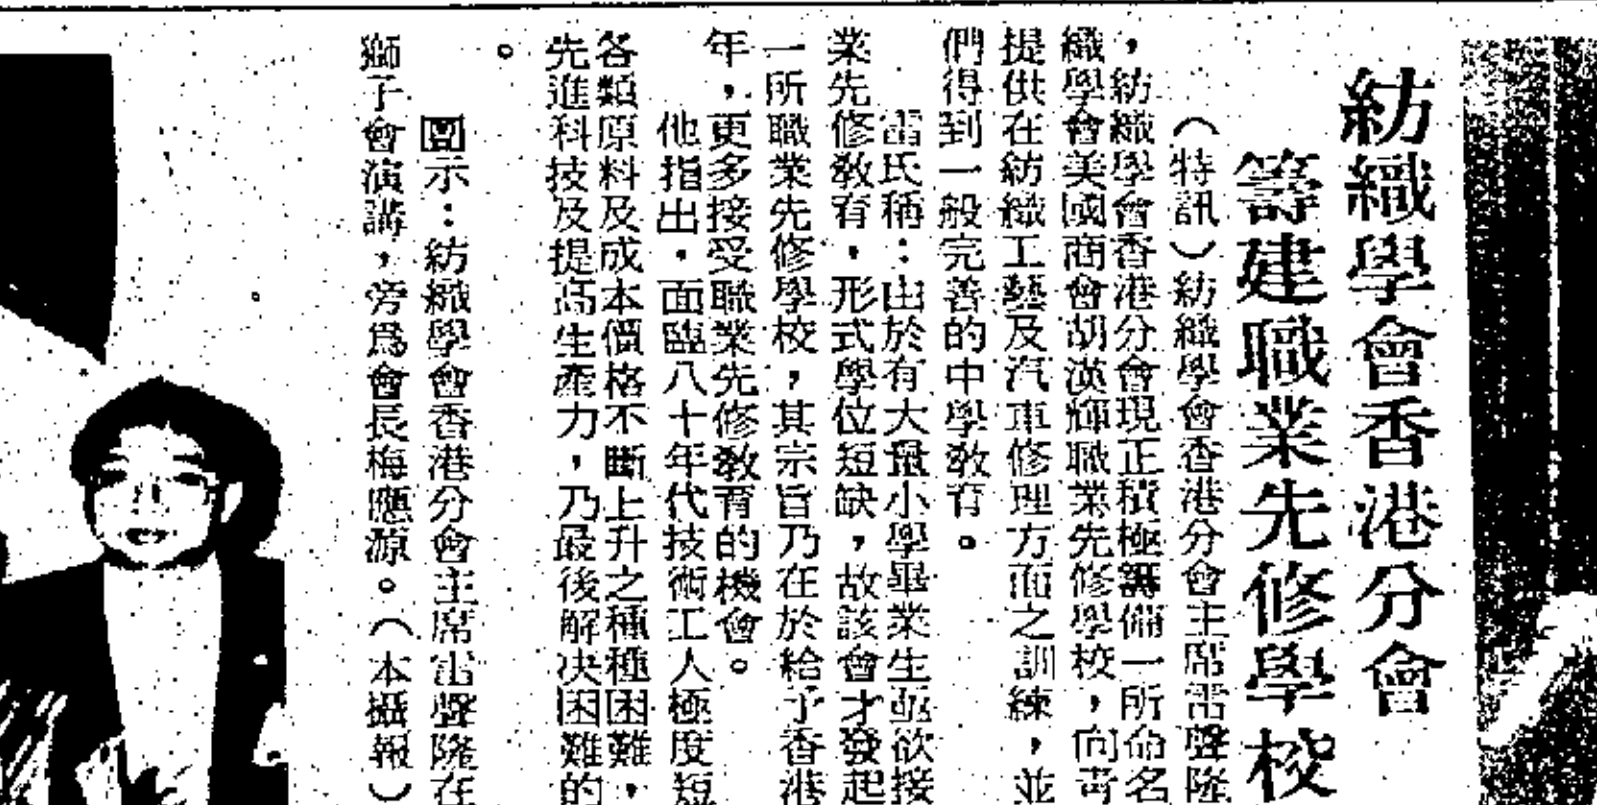 紡織學會香港分會
籌建職業先修學校
（特訊）紡織學會香港分會主席雷聲隆
，紡織學會香港分會現正積極籌備一所命名
織學會美國商會胡漢輝職業先修學校，向青
提供在紡織工藝及汽車修理方面之訓練，並
們得到一般完善的中學教育。
雷氏稱：由於有大量小學畢業生亟欲接
業先修教育，形式學位短缺，故該會才發起
一所職業先修學校，其宗旨乃在於給予香港
年，更多接受職業先修教育的機會。
他指出，面臨八十年代技術工人極度短
各類原料及成本價格不斷上升之種種困難，
先進科技及提高生產力，乃最後解决困難的
。
圖示：紡織學會香港分會主席雷聲隆在
獅子會演講，旁爲會長梅應源。（本攝報）